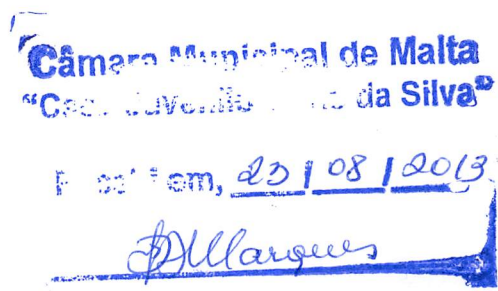 Câmara Municipal de Malta
"Casa Juvenil da Silva"
em, 23 / 08 / 2013
Marques